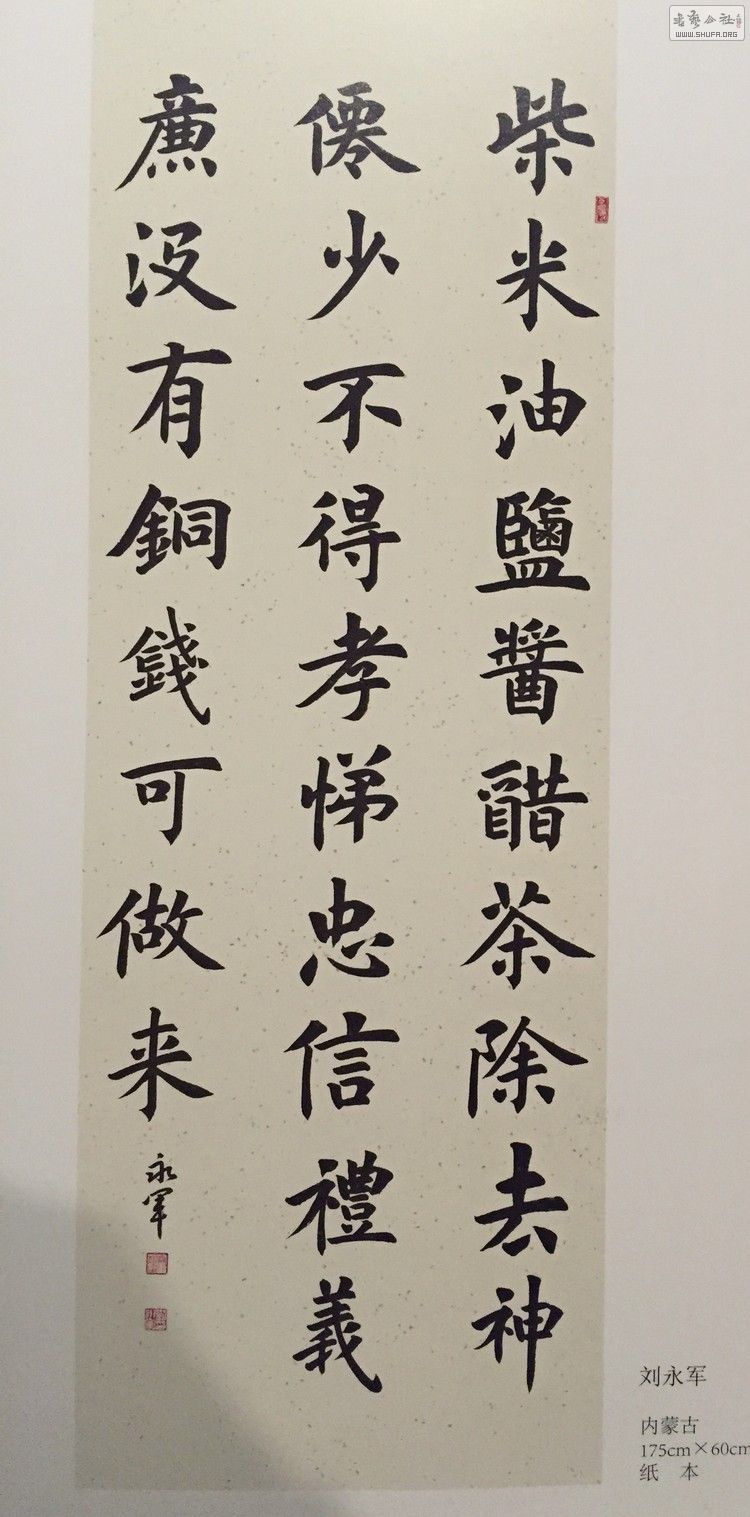 柴米油鹽醬醋茶除去神
僊少不得孝悌忠信禮義
廉没有銅錢可做来
永军
刘永军
内蒙古
175cm×60cm
纸 本
WWW.SHUFA.ORG